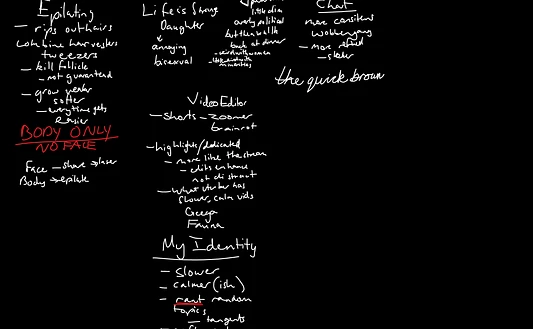 Epilating
- rips out hairs
combine harvesters
tweezers
- kill follicle
- not guaranteed
- grow weaker
softer
- everytime gets
Easier
BODY ONLY
NO FACE
Face - shave → laser
Body → epilate
Life is Strange
Daughter
annoying
bisexual
overly political
but then walk
back at dinner
- weird with women
minorities
Chat
more consistent
- more refined
the quick brown
Video Editor
- shorts - zoomer
brainrot
- highlights/dedicated
- more like the stream
- edits enhance
not distract
- What vtuber has
slower, calm vids
Geega
Fauna
My Identity
- slower
- calmer (ish)
- rant random
topics
- tangents